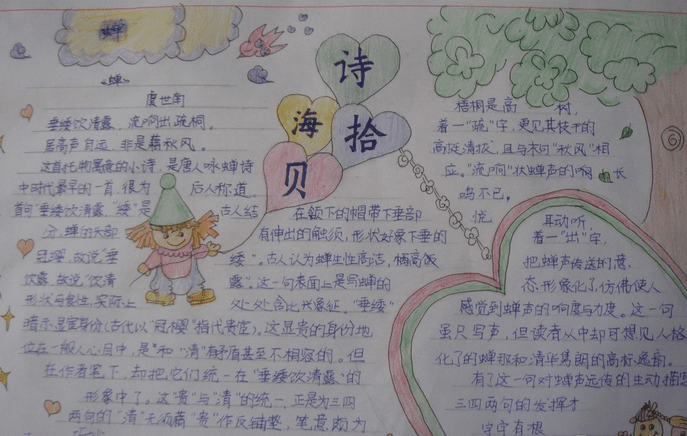 蝉
诗
海
拾
贝
《蝉》
虞世南
垂緌饮清露,流响出疏桐。
居高声自远,非是藉秋风。
这首托物寓意的小诗,是唐人咏蝉诗
中时代最早的一首,很为 后人称道.
首句“垂緌饮清露,“緌”是 古人结
在颔下的帽带下垂部
分,蝉的头部 有伸出的触须,形状好象下垂的
緌”。古人认为蝉生性高洁,栖高饮
饮露,故说“饮清 露”。这一句表面上是写蝉的
形状与食性,实际上 处处含比兴象征。“垂緌”
暗示显宦身份(古代以“冠缨”指代贵宦)。这显贵的身份地
位在一般人心目中,是“和“清”有矛盾甚至不相容的。但
在作者笔下,却把它们统一在“垂緌饮清露”的
形象中了。这“贵”与“清”的统一,正是为三四
两句的“清”无须藉“贵”作反铺垫,笔意颇为
梧桐是高 树,
着一“疏”字,更见其枝干的
高挺清拔,且与末句“秋风”相
应。“流响”状蝉声的 长
鸣不已,
悦 耳动听,
着一“出”字,
把蝉声传送的意
态形象化了,仿佛使人
感觉到蝉声的响度与力度。这一句
虽只写声,但读者从中却可想见人格
化了的蝉那和清华隽朗的高标逸韵。
有了这一句对蝉声远传的生动描
三四两句的发挥才
字字有根